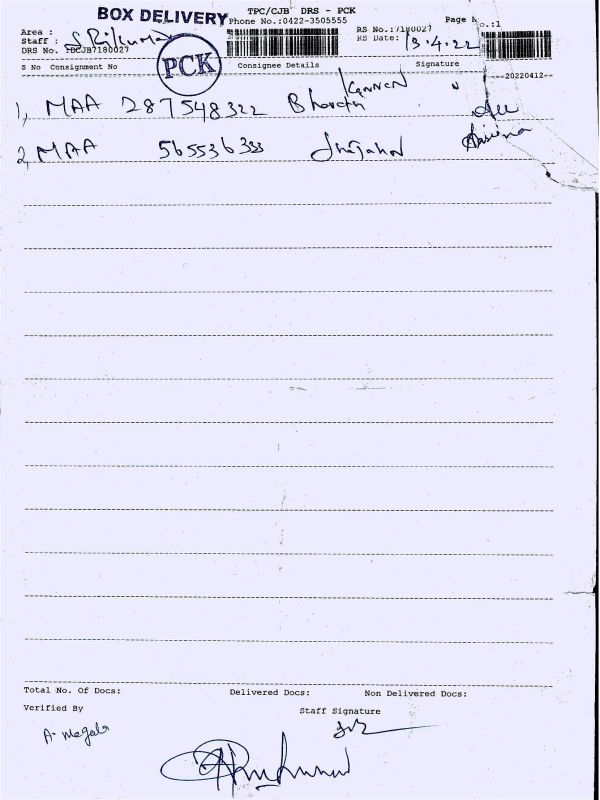 BOX DELIVERY
TPC/CJB DRS - PCK
Phone No.:0422-3505555
Page No.:1
Area :
Staff :
DRS No. :DCJB7180027
PCK
RS No.:7180027
RS Date: 13.4.22
S No Consignment No Consignee Details Signature
--20220412--
1, MAA 287548322 Bharath Kannan
2, MAA 565536333 Shajahan
Total No. Of Docs: Delivered Docs: Non Delivered Docs:
Verified By Staff Signature